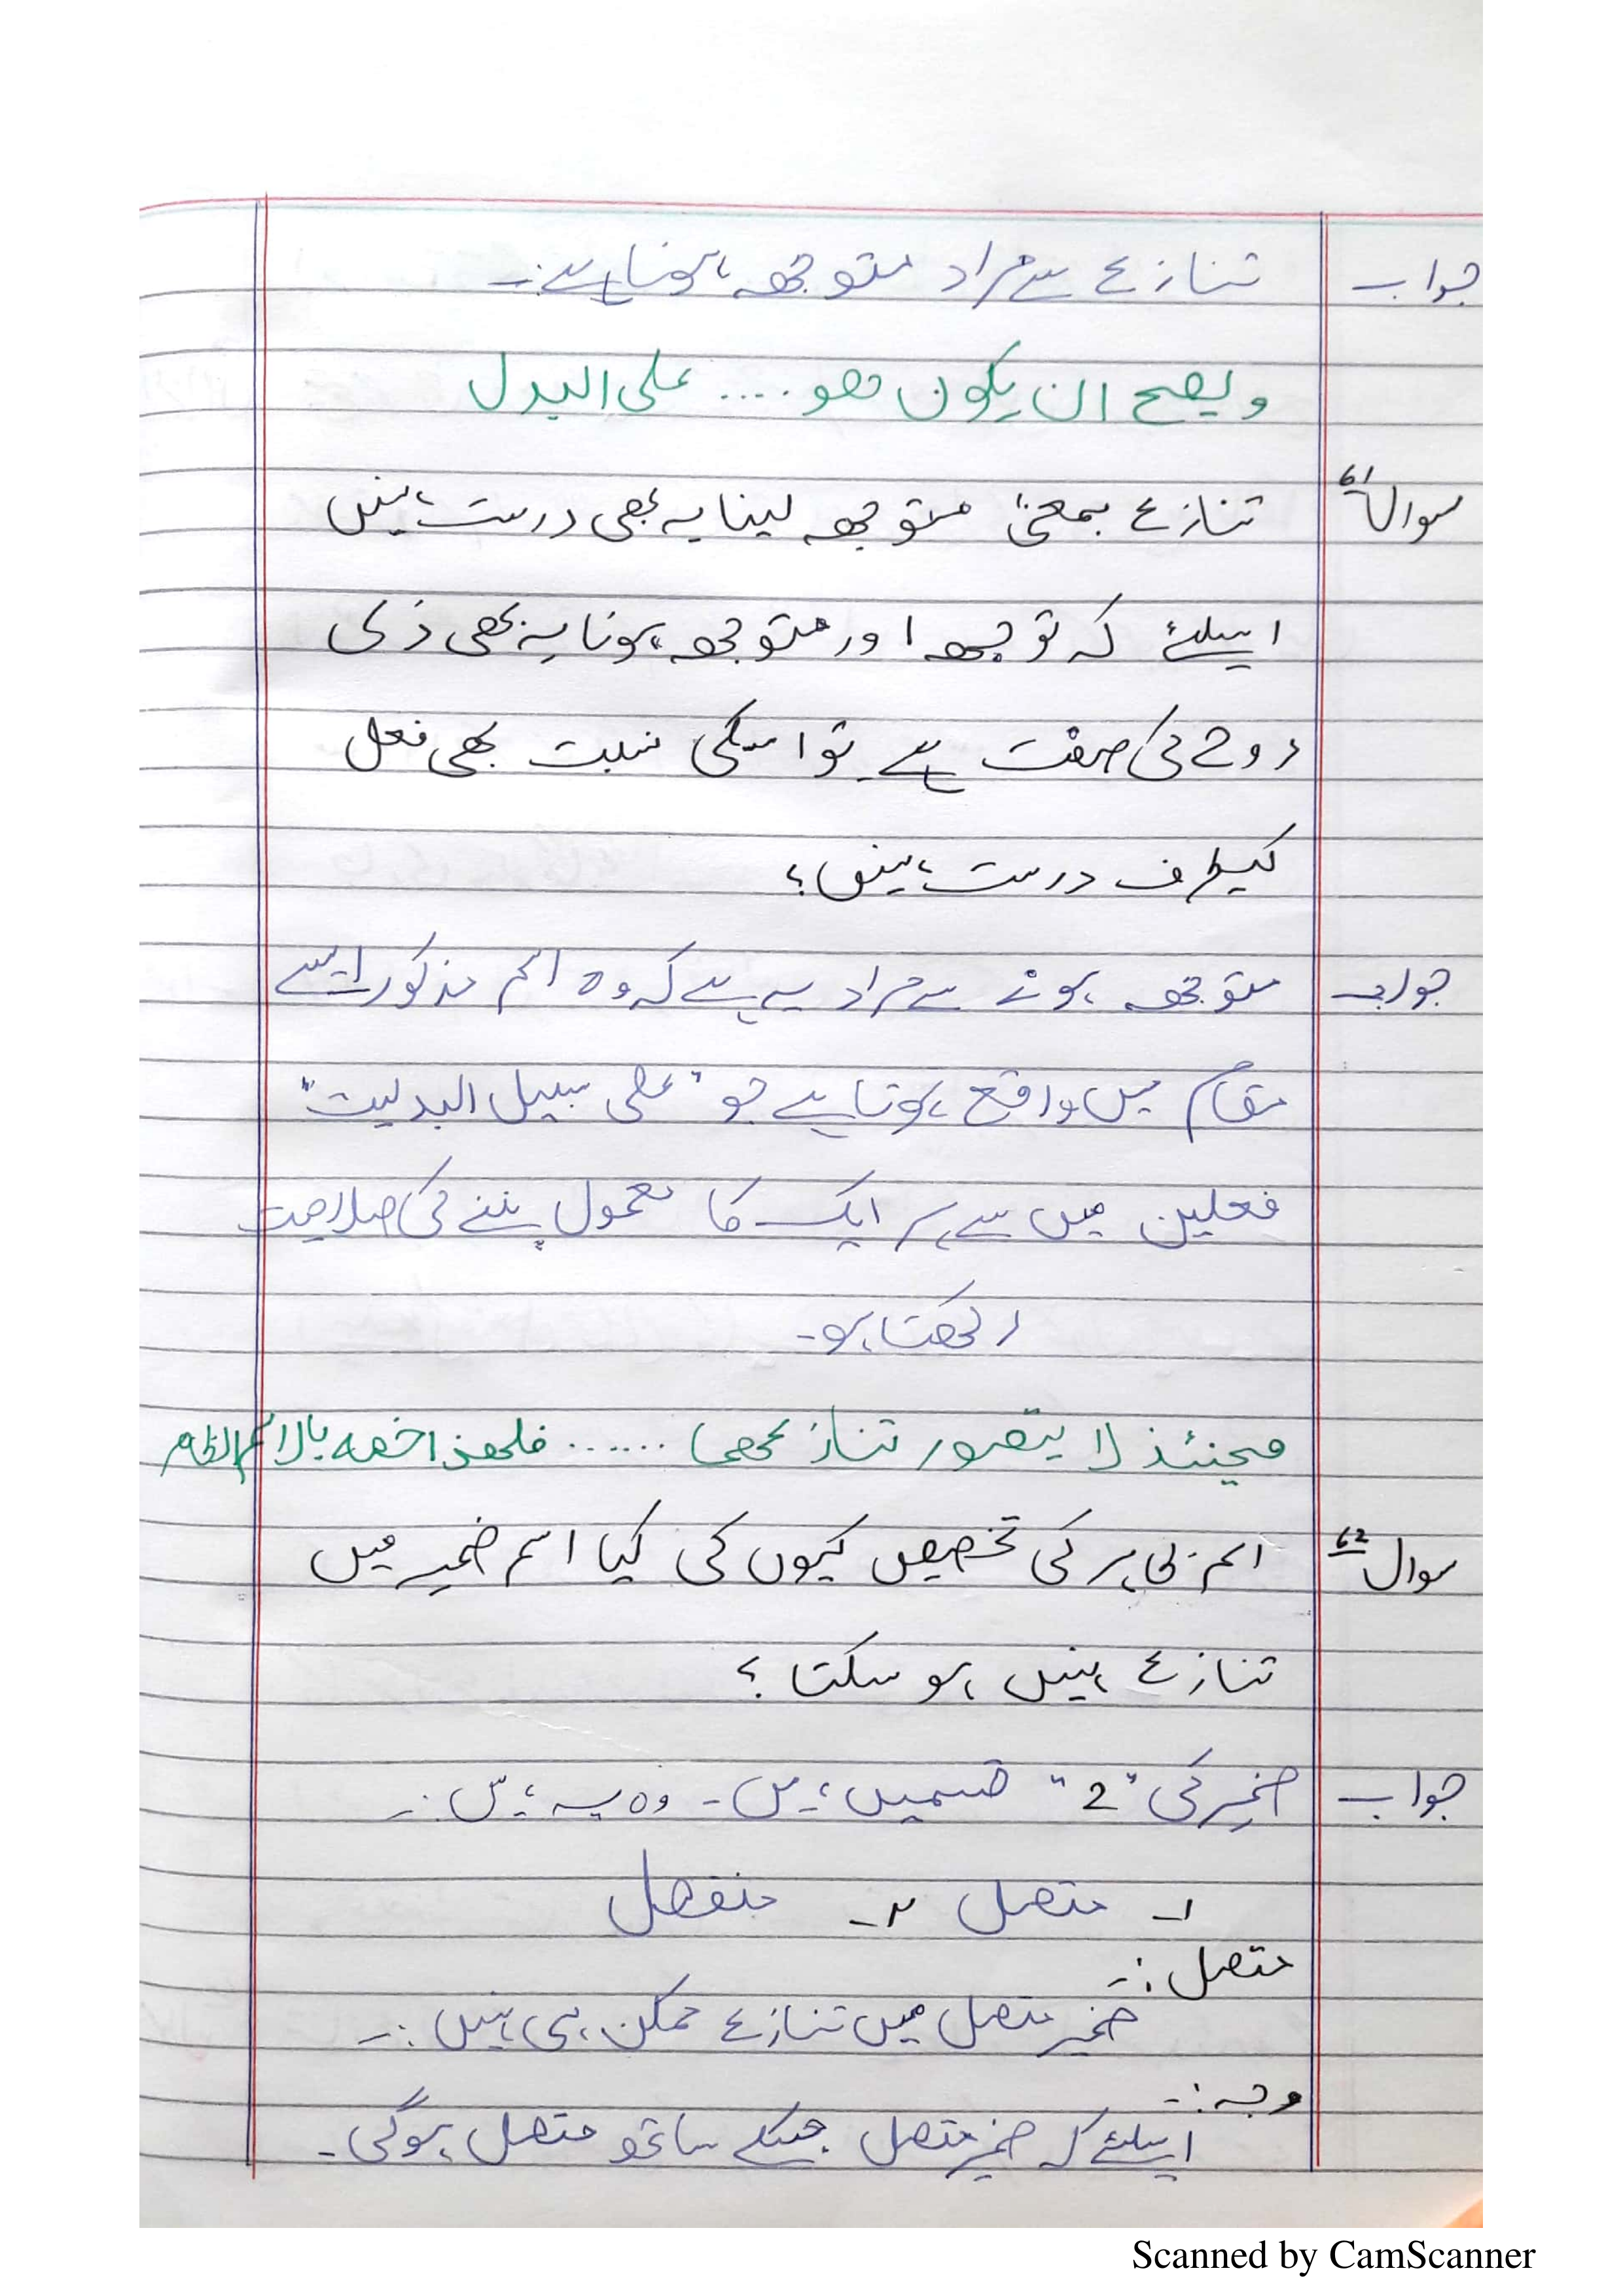 جواب تنازع سے مراد متوجہ ہونا ہے:۔
ویصح ان یکون ھو .... علی البدل
سوال 61 تنازع بمعنیٰ متوجہ لینا یہ بھی درست نہیں
اسلئے کہ توجہ اور متوجہ ہونا یہ بھی ذی
روح کی صفت ہے تو اسکی نسبت بھی فعل
کیطرف درست نہیں؟
جواب متوجہ ہونے سے مراد یہ ہے کہ وہ اسم مذکور ایسے
مقام میں واقع ہوتا ہے جو "علی سبیل البدلیت"
فعلین میں سے ہر ایک کا معمول بننے کی صلاحیت
رکھتا ہو۔
فحینئذ لا یتصور تنازعھما ...... فلھذا خصہ بالاسم الظاہر
سوال 62 اسم ظاہر کی تخصیص کیوں کی کیا اسم ضمیر میں
تنازع نہیں ہو سکتا؟
جواب ضمیر کی "2" قسمیں ہیں۔ وہ یہ ہیں:۔
۱۔ متصل ۲۔ منفصل
متصل:۔
ضمیر متصل میں تنازع ممکن ہی نہیں:۔
وجہ:۔
اسلئے کہ ضمیر متصل جسکے ساتھ متصل ہوگی۔
Scanned by CamScanner